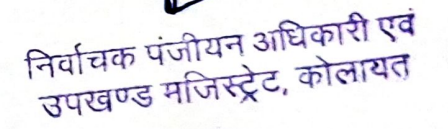 निर्वाचक पंजीयन अधिकारी एवं
उपखण्ड मजिस्ट्रेट, कोलायत